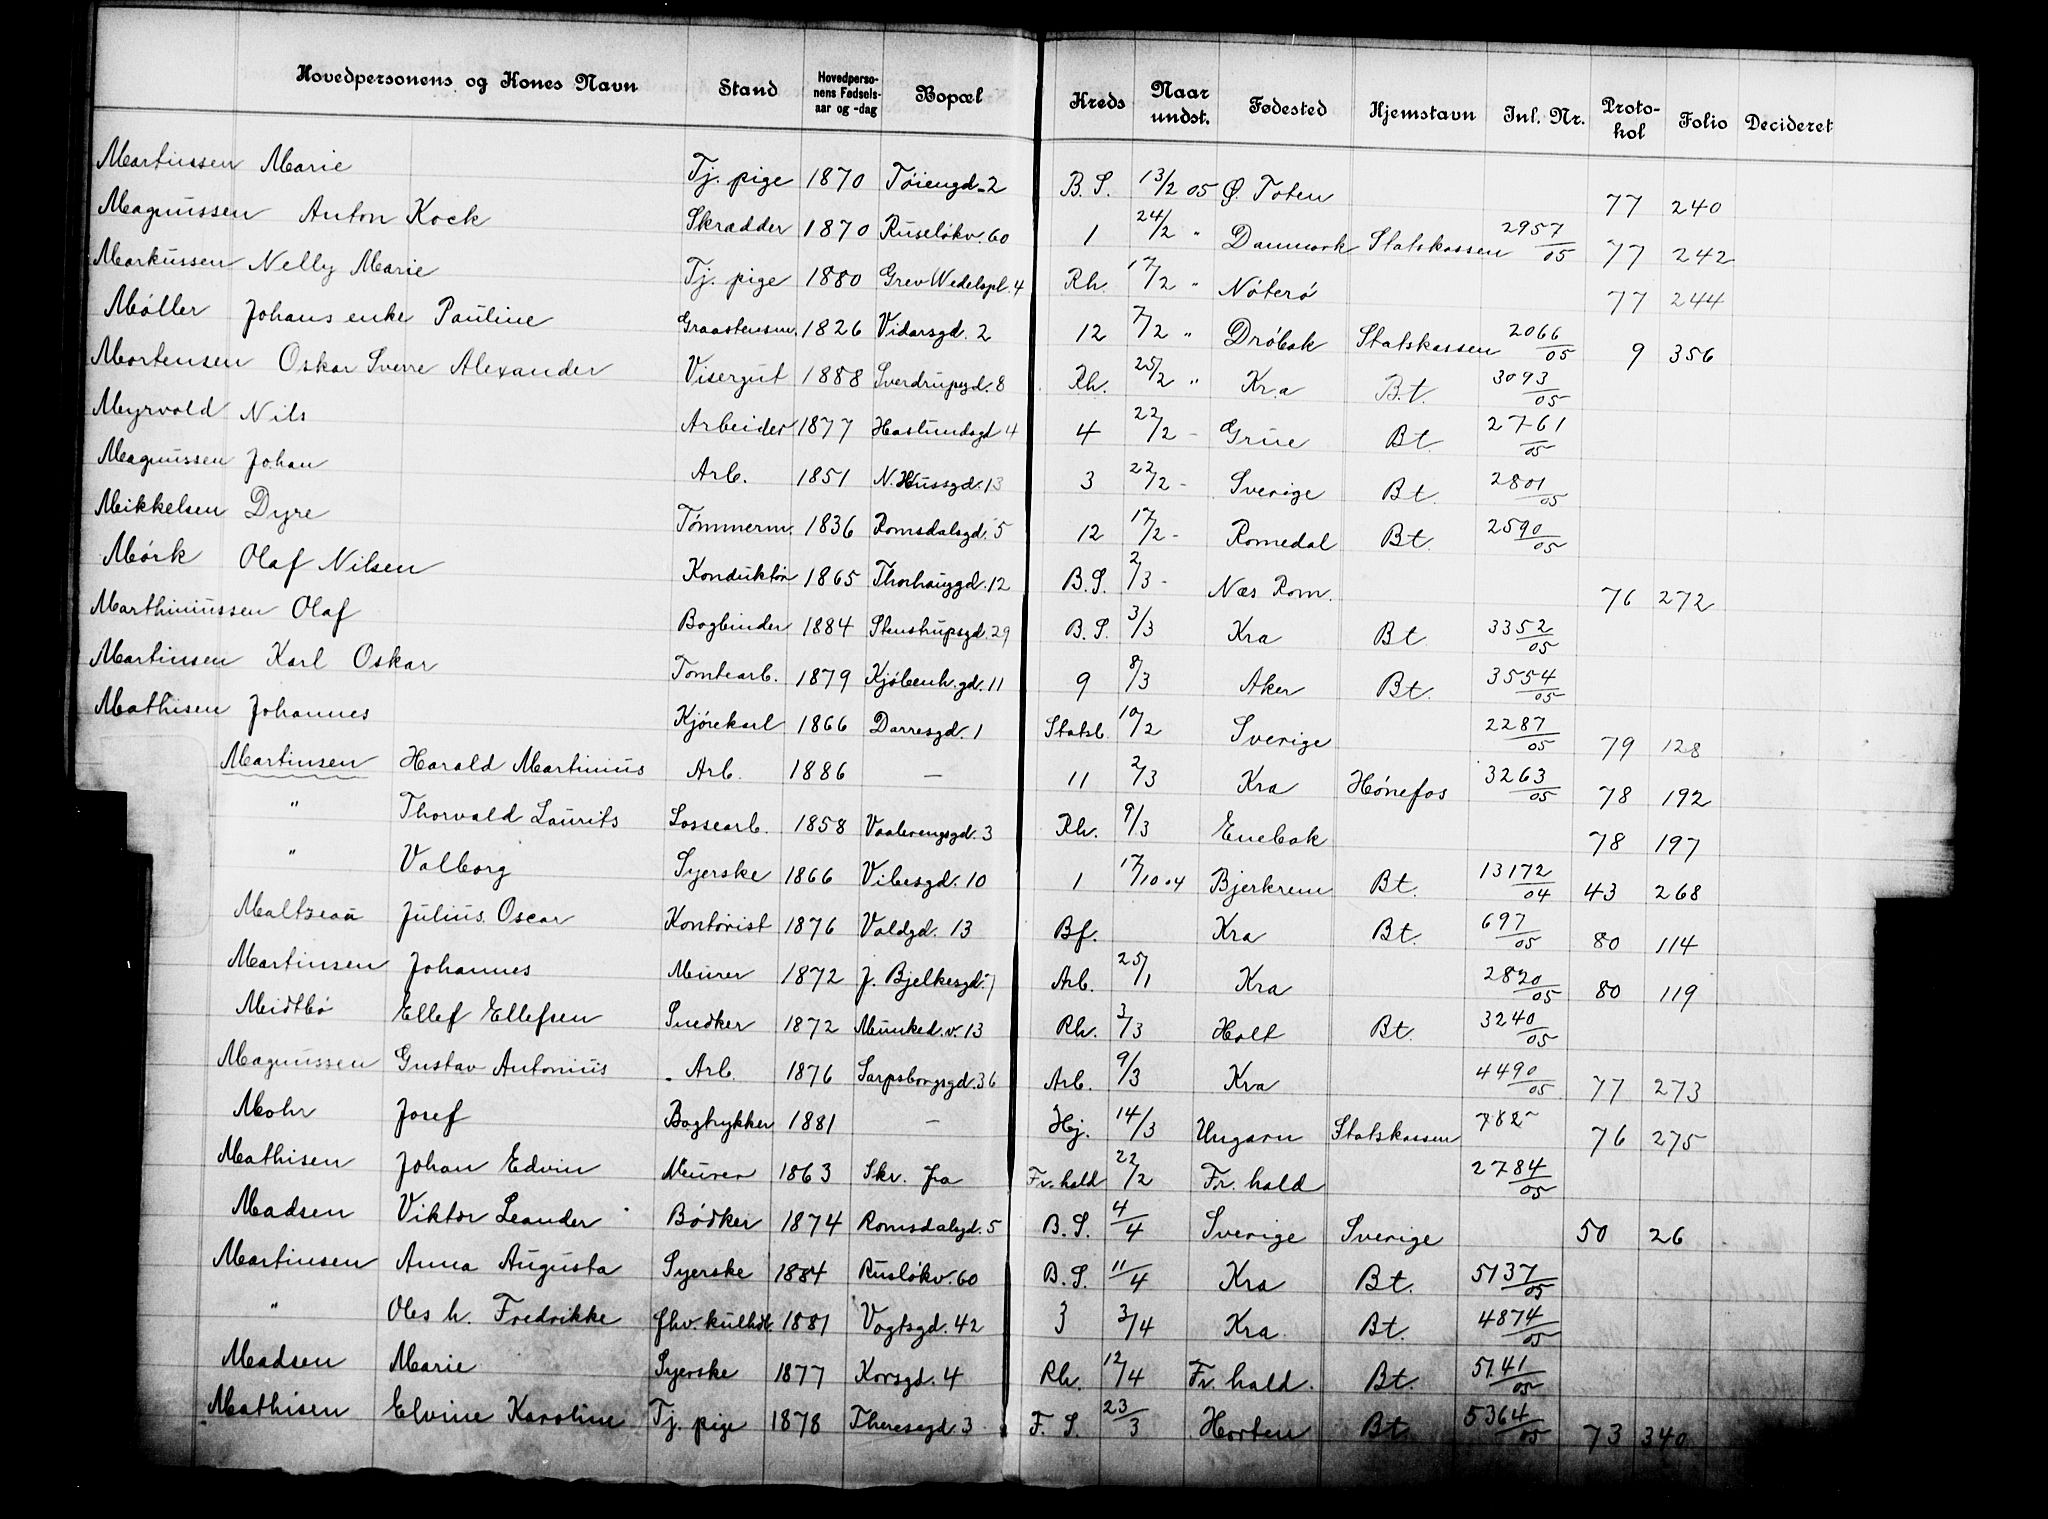 Hovedpersonens og Kones Navn Stand Hovedpersonens Fødselsaar og -dag Bopæl Kreds Naar undst. Fødested Hjemstavn Inl. Nr. Protokol Folio Decideret
Martinssen Marie Tj. pige 1870 Tøiengd. 2 B. S. 13/2 05 Ø. Toten 77 240
Magnussen Anton Kock Skrædder 1870 Ruseløkv. 60 1 24/2 " Danmark Statskassen 2957/05 77 242
Markussen Nelly Marie Tj. pige 1880 Grev Wedelspl. 4 Rh. 17/2 " Nøterø 77 244
Møller Johans enke Pauline Graastensm. 1826 Vidarsgd. 2 12 7/2 " Drøbak Statskassen 2066/05 9 356
Mortensen Oskar Sverre Alexander Visergut 1888 Sverdrupsgd. 8 Rh. 25/2 " Kra Bt. 3093/05
Myrvold Nils Arbeider 1877 Haslundsgd 4 4 22/2 - Grue Bt. 2761/05
Magnussen Johan Arb. 1851 N. Hussgd. 13 3 22/2 - Sverige Bt. 2801/05
Mikkelsen Dyre Tømmerm. 1836 Romsdalsgd. 5 12 17/2 - Romedal Bt. 2590/05
Mørk Olaf Nilsen Konduktør 1865 Thorhauggd. 12 B. S. 2/3 - Næs Rom. 76 272
Marthiniussen Olaf Bogbinder 1884 Stenstrupsgd. 29 B. S. 3/3 Kra Bt. 3352/05
Martinsen Karl Oskar Tomtearb. 1879 Kjøbenh. gd. 11 9 8/3 Aker Bt. 3554/05
Mathisen Johannes Kjørekarl 1866 Darresgd. 1 Statsb. 10/2 Sverige 2287/05 79 128
Martinsen Harald Martinius Arb. 1886 — 11 2/3 Kra Hønefos 3263/05 78 192
" Thorvald Laurits Lossearb. 1858 Vaalerengsgd. 3 Rh. 9/3 Enebak 78 197
" Valborg Syerske 1866 Vibesgd. 10 1 17/10 04 Bjerkrem Bt. 13172/04 43 268
Maltzeau Julius Oscar Kontorist 1876 Valdgd. 13 Bf. Kra Bt. 697/05 80 114
Martinsen Johannes Murer 1872 J. Bjelkesgd. 7 Arb. 25/1 Kra 2820/05 80 119
Midtbø Ellef Ellefsen Snedker 1872 Munked. v. 13 Rh. 3/3 Holt Bt. 3240/05
Magnussen Gustav Antonius Arb. 1876 Sarpsborgsgd. 36 Arb. 9/3 Kra 4490/05 77 273
Mohr Josef Bogtrykker 1881 — Hj. 14/3 Ungarn Statskassen 782 76 275
Mathisen Johan Edvin Murer 1863 Skr. fra Fr. hald 22/2 Fr. hald 2784/05
Madsen Viktor Leander Bødker 1874 Romsdalsgd. 5 B. S. 4/4 Sverige Sverige 50 26
Martinsen Anna Augusta Syerske 1884 Rusløkv. 60 B. S. 11/4 Kra Bt. 5137/05
" Oles h. Fredrikke fhv. kulhdl. 1881 Vogtsgd. 42 3 3/4 Kra Bt. 4874/05
Madsen Marie Syerske 1877 Korsgd. 4 Rh. 12/4 Fr. hald. Bt. 5141/05
Mathisen Elvine Karoline Tj. pige 1878 Theresegd. 3 F. S. 23/3 Horten Bt. 5364/05 73 340